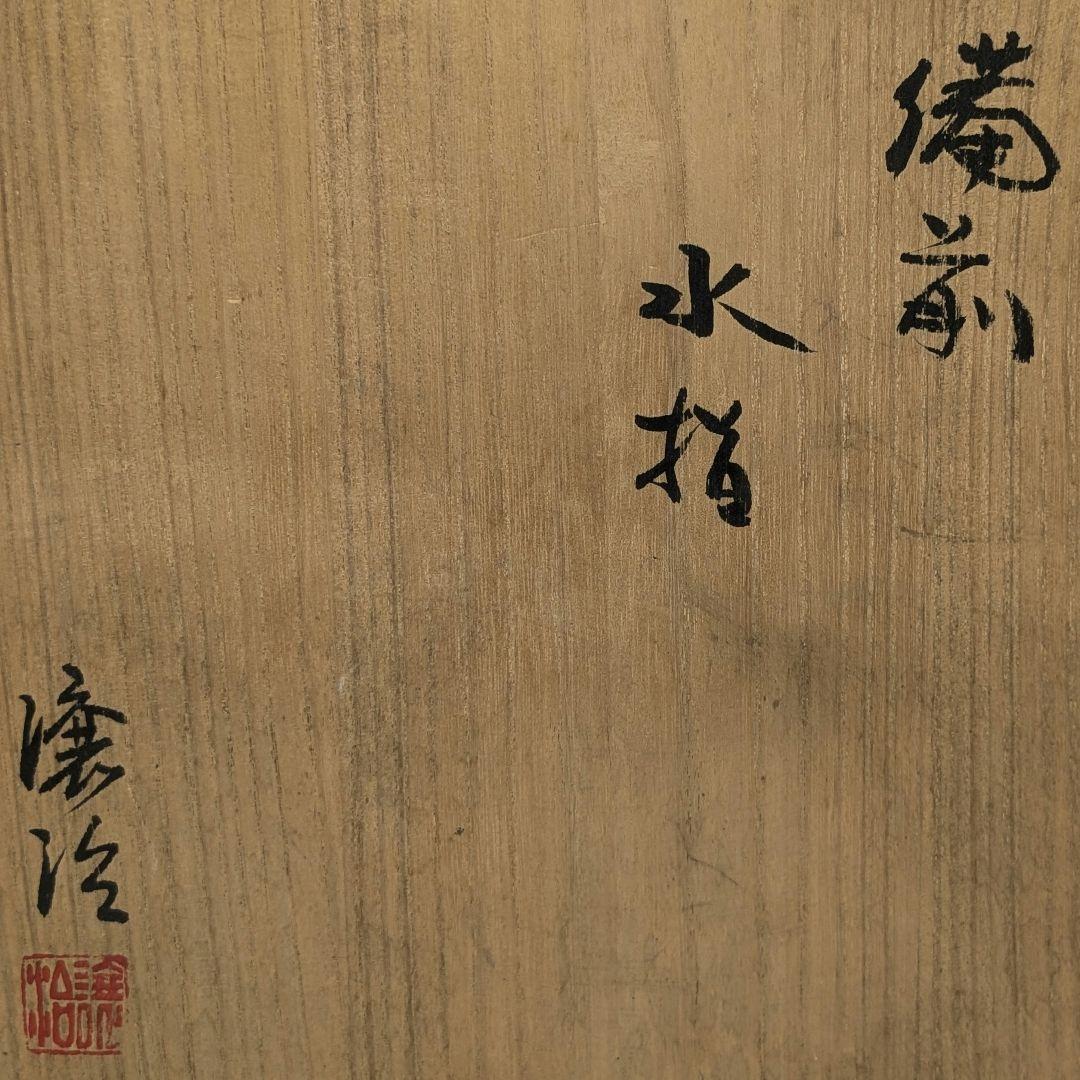 備前
水指
譲治